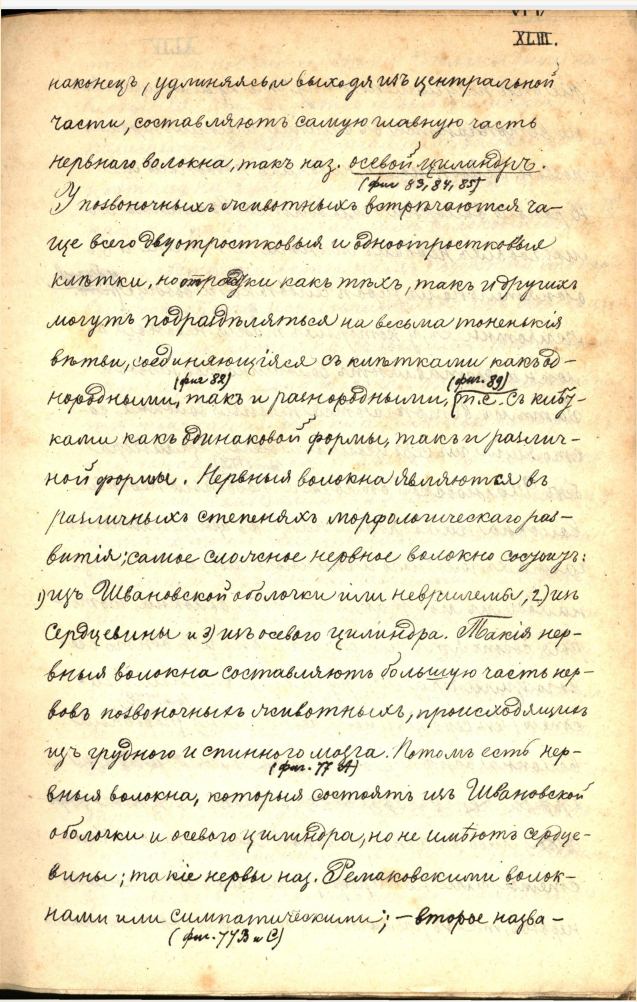 XLIII.
наконецъ, удлиняясь и выходя изъ центральной
части, составляютъ самую главную часть
нервнаго волокна, такъ наз. осевой цилиндръ.
(фиг 83, 84, 85)
У позвоночныхъ животныхъ встрѣчаются ча-
ще всего двуотростковыя и одноотростковыя
клѣтки, но отростки какъ тѣхъ, такъ и другихъ
могутъ подраздѣляться на весьма тоненькія
вѣтви, соединяющіяся съ клѣтками какъ од-
(фиг 82) (фиг. 89)
нородными, такъ и разнородными, т.е. съ клѣт-
ками какъ одинаковой формы, такъ и различ-
ной формы. Нервныя волокна являются въ
различныхъ степеняхъ морфологическаго раз-
витія; самое сложное нервное волокно состоитъ:
1) изъ Швановской оболочки или неврилемы, 2) изъ
сердцевины и 3) изъ осевого цилиндра. Такія нер-
вныя волокна составляютъ большую часть нер-
вовъ позвоночныхъ животныхъ, происходящихъ
изъ грудного и спинного мозга. Потомъ есть нер-
(фиг. 77 А)
вныя волокна, которыя состоятъ изъ Швановской
оболочки и осевого цилиндра, но не имѣютъ сердце-
вины; такіе нервы наз. Ремаковскими волок-
нами или симпатическими; – второе назва-
(фиг. 77 В и С)